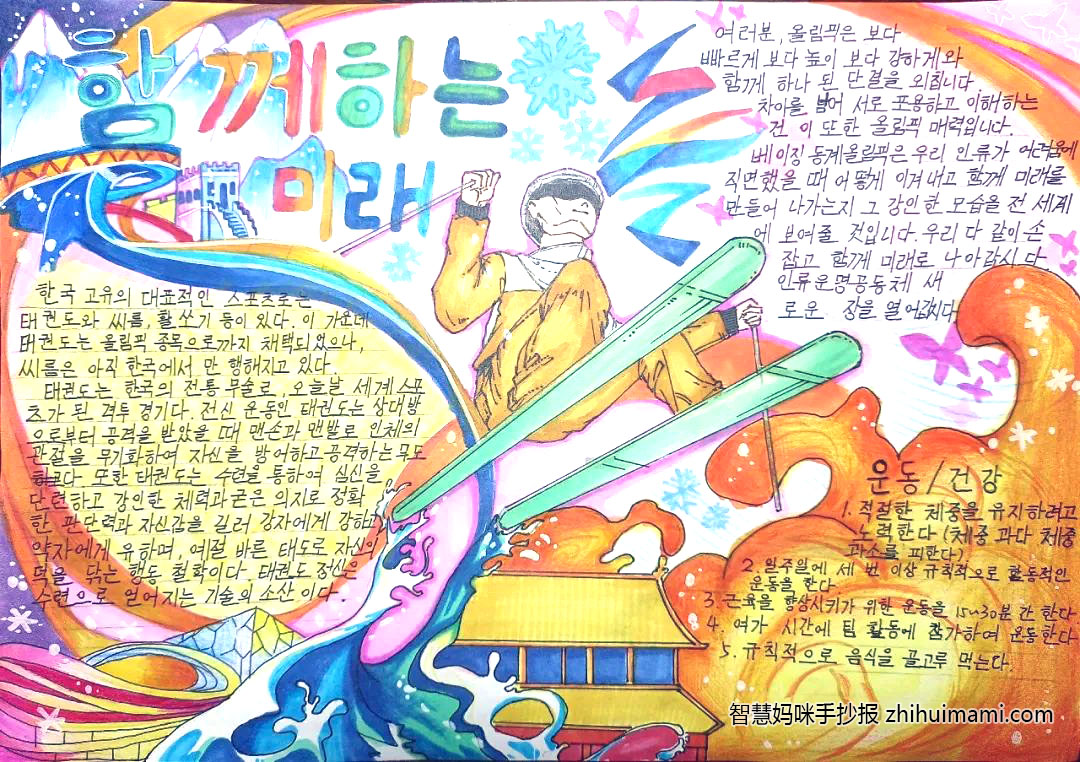 함께하는
미래
여러분, 올림픽은 보다
빠르게 보다 높이 보다 강하게와
함께 하나 된 단결을 외칩니다.
차이를 넘어 서로 포용하고 이해하는
건 이 또한 올림픽 매력입니다.
베이징 동계올림픽은 우리 인류가 어려움에
직면했을 때 어떻게 이겨내고 함께 미래를
만들어 나가는지 그 강인한 모습을 전 세계
에 보여줄 것입니다. 우리 다 같이 손
잡고 함께 미래로 나아갑시다.
인류운명공동체 새
로운 장을 열어갑시다
한국 고유의 대표적인 스포츠로는
태권도와 씨름, 활쏘기 등이 있다. 이 가운데
태권도는 올림픽 종목으로까지 채택되었으나,
씨름은 아직 한국에서 만 행해지고 있다.
태권도는 한국의 전통 무술로, 오늘날 세계 스포
츠가 된 격투 경기다. 전신 운동인 태권도는 상대방
으로부터 공격을 받았을 때 맨손과 맨발로 인체의
관절을 무기화하여 자신을 방어하고 공격하는 무도
하고다. 또한 태권도는 수련을 통하여 심신을
단련하고 강인한 체력과 굳은 의지로 정확
한 판단력과 자신감을 길러 강자에게 강하고
약자에게 유하며, 예절 바른 태도로 자신의
덕을 닦는 행동 철학이다. 태권도 정신은
수련으로 얻어지는 기술의 소산 이다.
운동/건강
1. 적절한 체중을 유지하려고
노력한다 (체중 과다 체중
과소를 피한다)
2. 일주일에 세 번 이상 규칙적으로 활동적인
운동을 한다
3. 근육을 향상시키기 위한 운동을 15~30분 간 한다
4. 여가 시간에 팀 활동에 참가하여 운동한다
5. 규칙적으로 음식을 골고루 먹는다.
智慧妈咪手抄报 zhihuimami.com